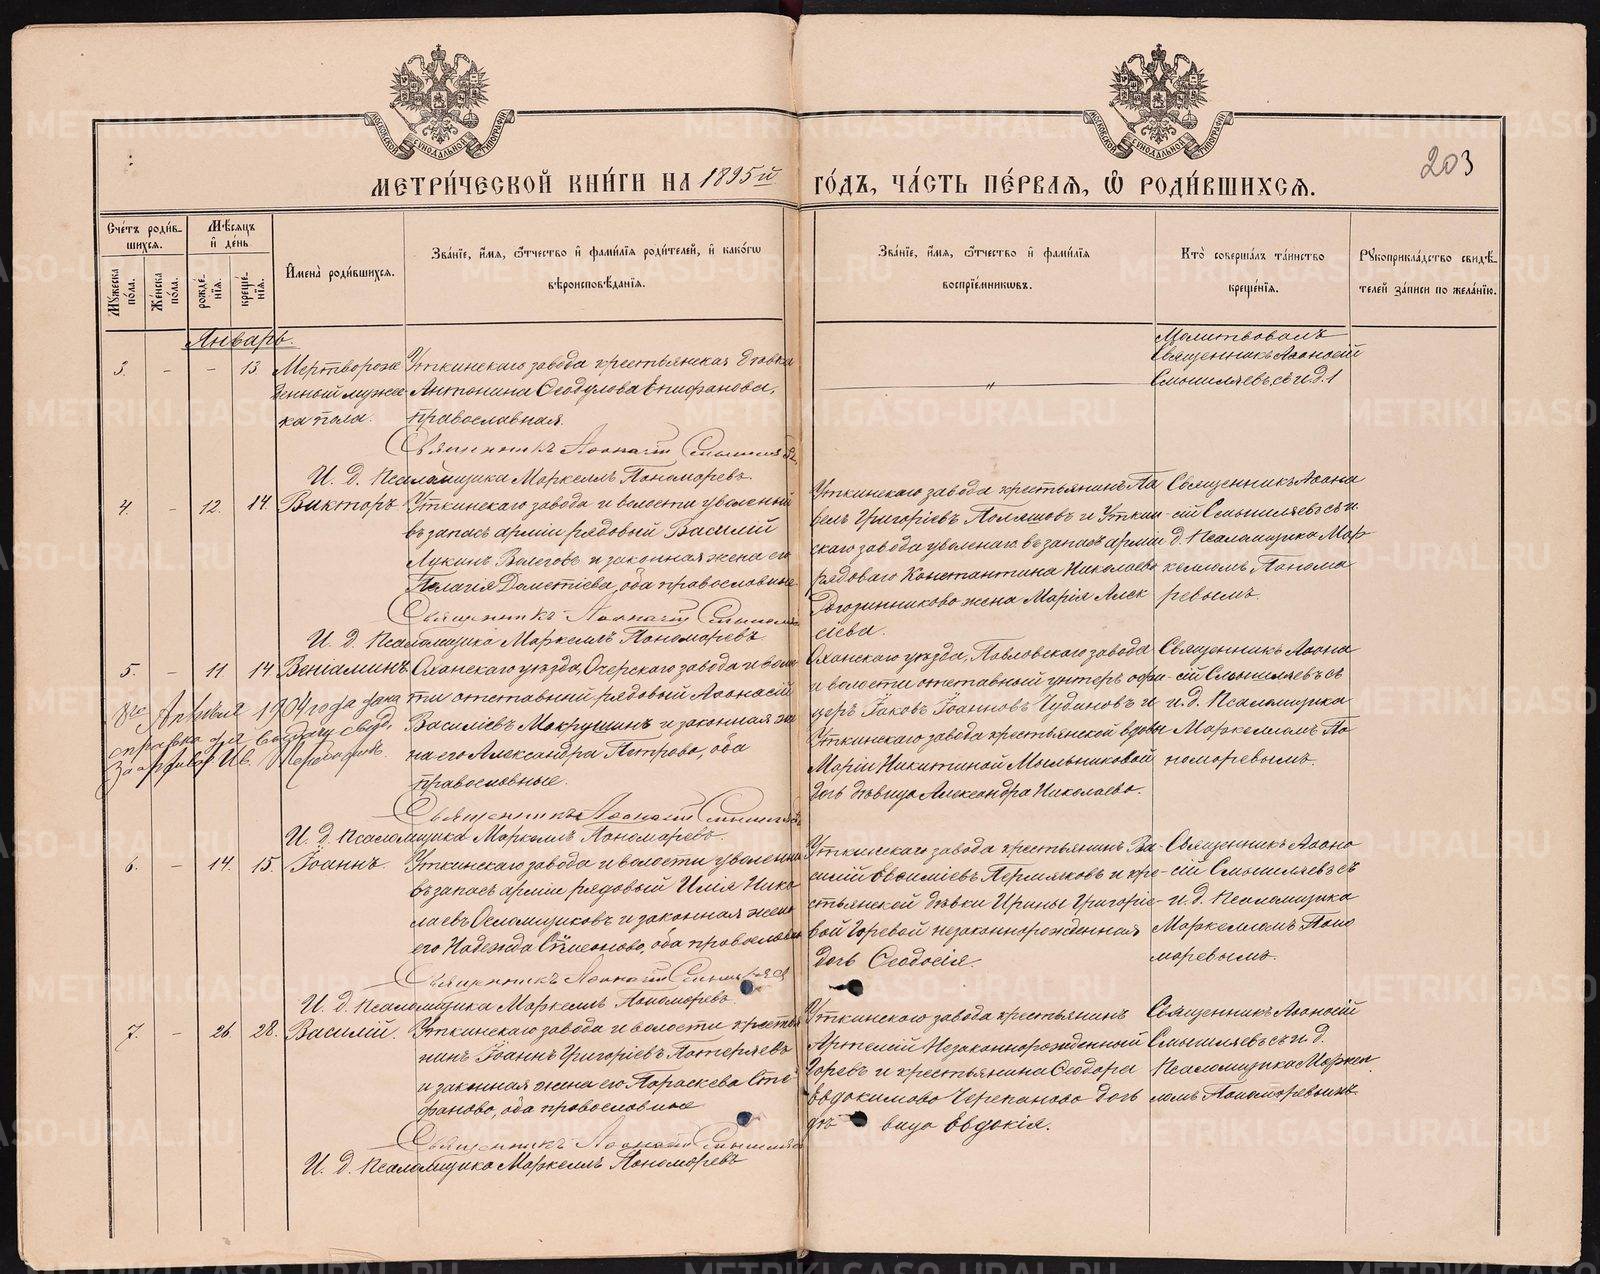 МЕТРИ́ЧЕСКОЙ КНИ́ГИ НА 1895й ГО́ДЪ, ЧА́СТЬ ПЕ́РВАѦ, Ѿ РОДИ́ВШИХСѦ.
203
Сче́тъ роди́вшихся.
Мꙋ́жеска по́ла.
Же́нска по́ла.
Мѣ́сяцъ и́ де́нь
рожде́нїѧ.
креще́нїѧ.
И҆мена̀ роди́вшихсѧ.
Зва́нїе, и҆́мѧ, ѻ҆́тчество и҆ фами́лїѧ роди́телей, и҆ како́гѡ
вѣроисповѣ́данїѧ.
Зва́нїе, и҆́мѧ, ѻ҆́тчество и҆ фами́лїѧ
воспрїе́мникѡвъ.
Кто̀ соверша́лъ та́инство
креще́нїѧ.
Рꙋкоприкла́дство свидѣ́-
телей за́писи по жела́нїю.
Январь.
3. - - 13. Мертворож
денный муже
ка пола.
Уткинскаго завода крестьянская дѣвка
Антонина Ѳеодулова Епифанова,
православная.
Священникъ Аѳанасій Смышляевъ
И. Д. Псаломщика Маркеллъ Пономаревъ.
Молитвовалъ
Священникъ Аѳонасій
Смышляевъ, съ и. д. 1
4. - 12. 14. Викторъ
Уткинскаго завода и волости уволеный
въ запасъ арміи рядовый Василій
Лукинъ и законная жена его
Пелагія Дометіева, оба православные
Священникъ Аѳанасій Смышляевъ
И. Д. Псаломщика Маркеллъ Пономаревъ
Уткинскаго завода крестьянинъ Па
велъ Григоріевъ и Уткин-
скаго завода уволенаго въ запасъ арміи
рядоваго Константина Николаева
жена Марія Алек
сіева.
Священникъ Аѳана
сій Смышляевъ съ и.
д. Псаломщика Мар
келломъ Понома
ревымъ.
5. - 11 14. Веніаминъ
Оханскаго уѣзда, Очерскаго завода и воло
сти отставный рядовый Аѳонасій
Василіевъ Мокрушинъ и законная же
на его Александра Петрова, оба
православные.
Священникъ Аѳанасій Смышляевъ
И. Д. Псаломщика Маркеллъ Пономаревъ.
Апрѣля 1904 года дана
справка для выдачу
Оханскаго уѣзда, Павловскаго завода
и волости отставный унтеръ офи-
церъ Іаковъ Іоанновъ Чудиновъ и
Уткинскаго завода крестьянской вдовы
Маріи Никитиной Мыльниковой
дочь дѣвица Александра Николаева.
Священникъ Аѳона
сій Смышляевъ съ
и. д. Псаломщика
Маркелломъ По
номаревымъ.
6. - 14. 15. Іоаннъ.
Уткинскаго завода и волости уволенный
въ запасъ арміи рядовый Илія Нико
лаевъ и законная жена
его Надежда Сѵмеонова, оба православные
Священникъ Аѳанасій Смышляевъ
И. Д. Псаломщика Маркеллъ Пономаревъ.
Уткинскаго завода крестьянинъ Ва-
силій Евѳиміевъ Пермяковъ и кре-
стьянской дѣвки Ирины Григоріе-
вой Горевой незаконнорожденная
дочь Ѳеодосія.
Священникъ Аѳона
сій Смышляевъ съ
и. д. Псаломщика
Маркелломъ Поно
маревымъ.
7. - 26. 28. Василій.
Уткинскаго завода и волости крестья
нинъ Іоаннъ Григоріевъ Потеряевъ
и законная жена его Параскева Сте
фанова, оба православные
Священникъ Аѳанасій Смышляевъ
И. Д. Псаломщика Маркеллъ Пономаревъ
Уткинскаго завода крестьянинъ
Артемій Незаконнорожденный
Горевъ и крестьянина Ѳеодора
Евдокимова Черепанова дочь
дѣвица Евдокія.
Священникъ Аѳонасій
Смышляевъ съ и. д.
Псаломщика Маркел
ломъ Пономаревымъ
METRIKI.GASO-URAL.RU